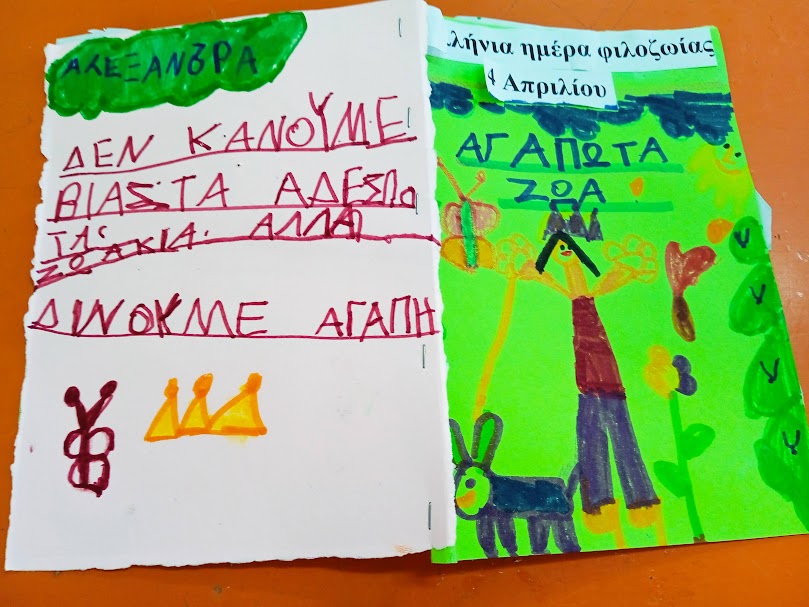 ΑΛΕΞΑΝΔΡΑ
ΔΕΝ ΚΑΝΟΥΜΕ
ΒΙΑΣΤΑ ΑΔΕΣΠΟ
ΤΑ ΑΛΛΑ
ΖΩΑΚΙΑ
ΔΙΝΟΥΜΕ ΑΓΑΠΗ
λήνια ημέρα φιλοζωίας
4 Απριλίου
ΑΓΑΠΩΤΑ
ΖΩΑ